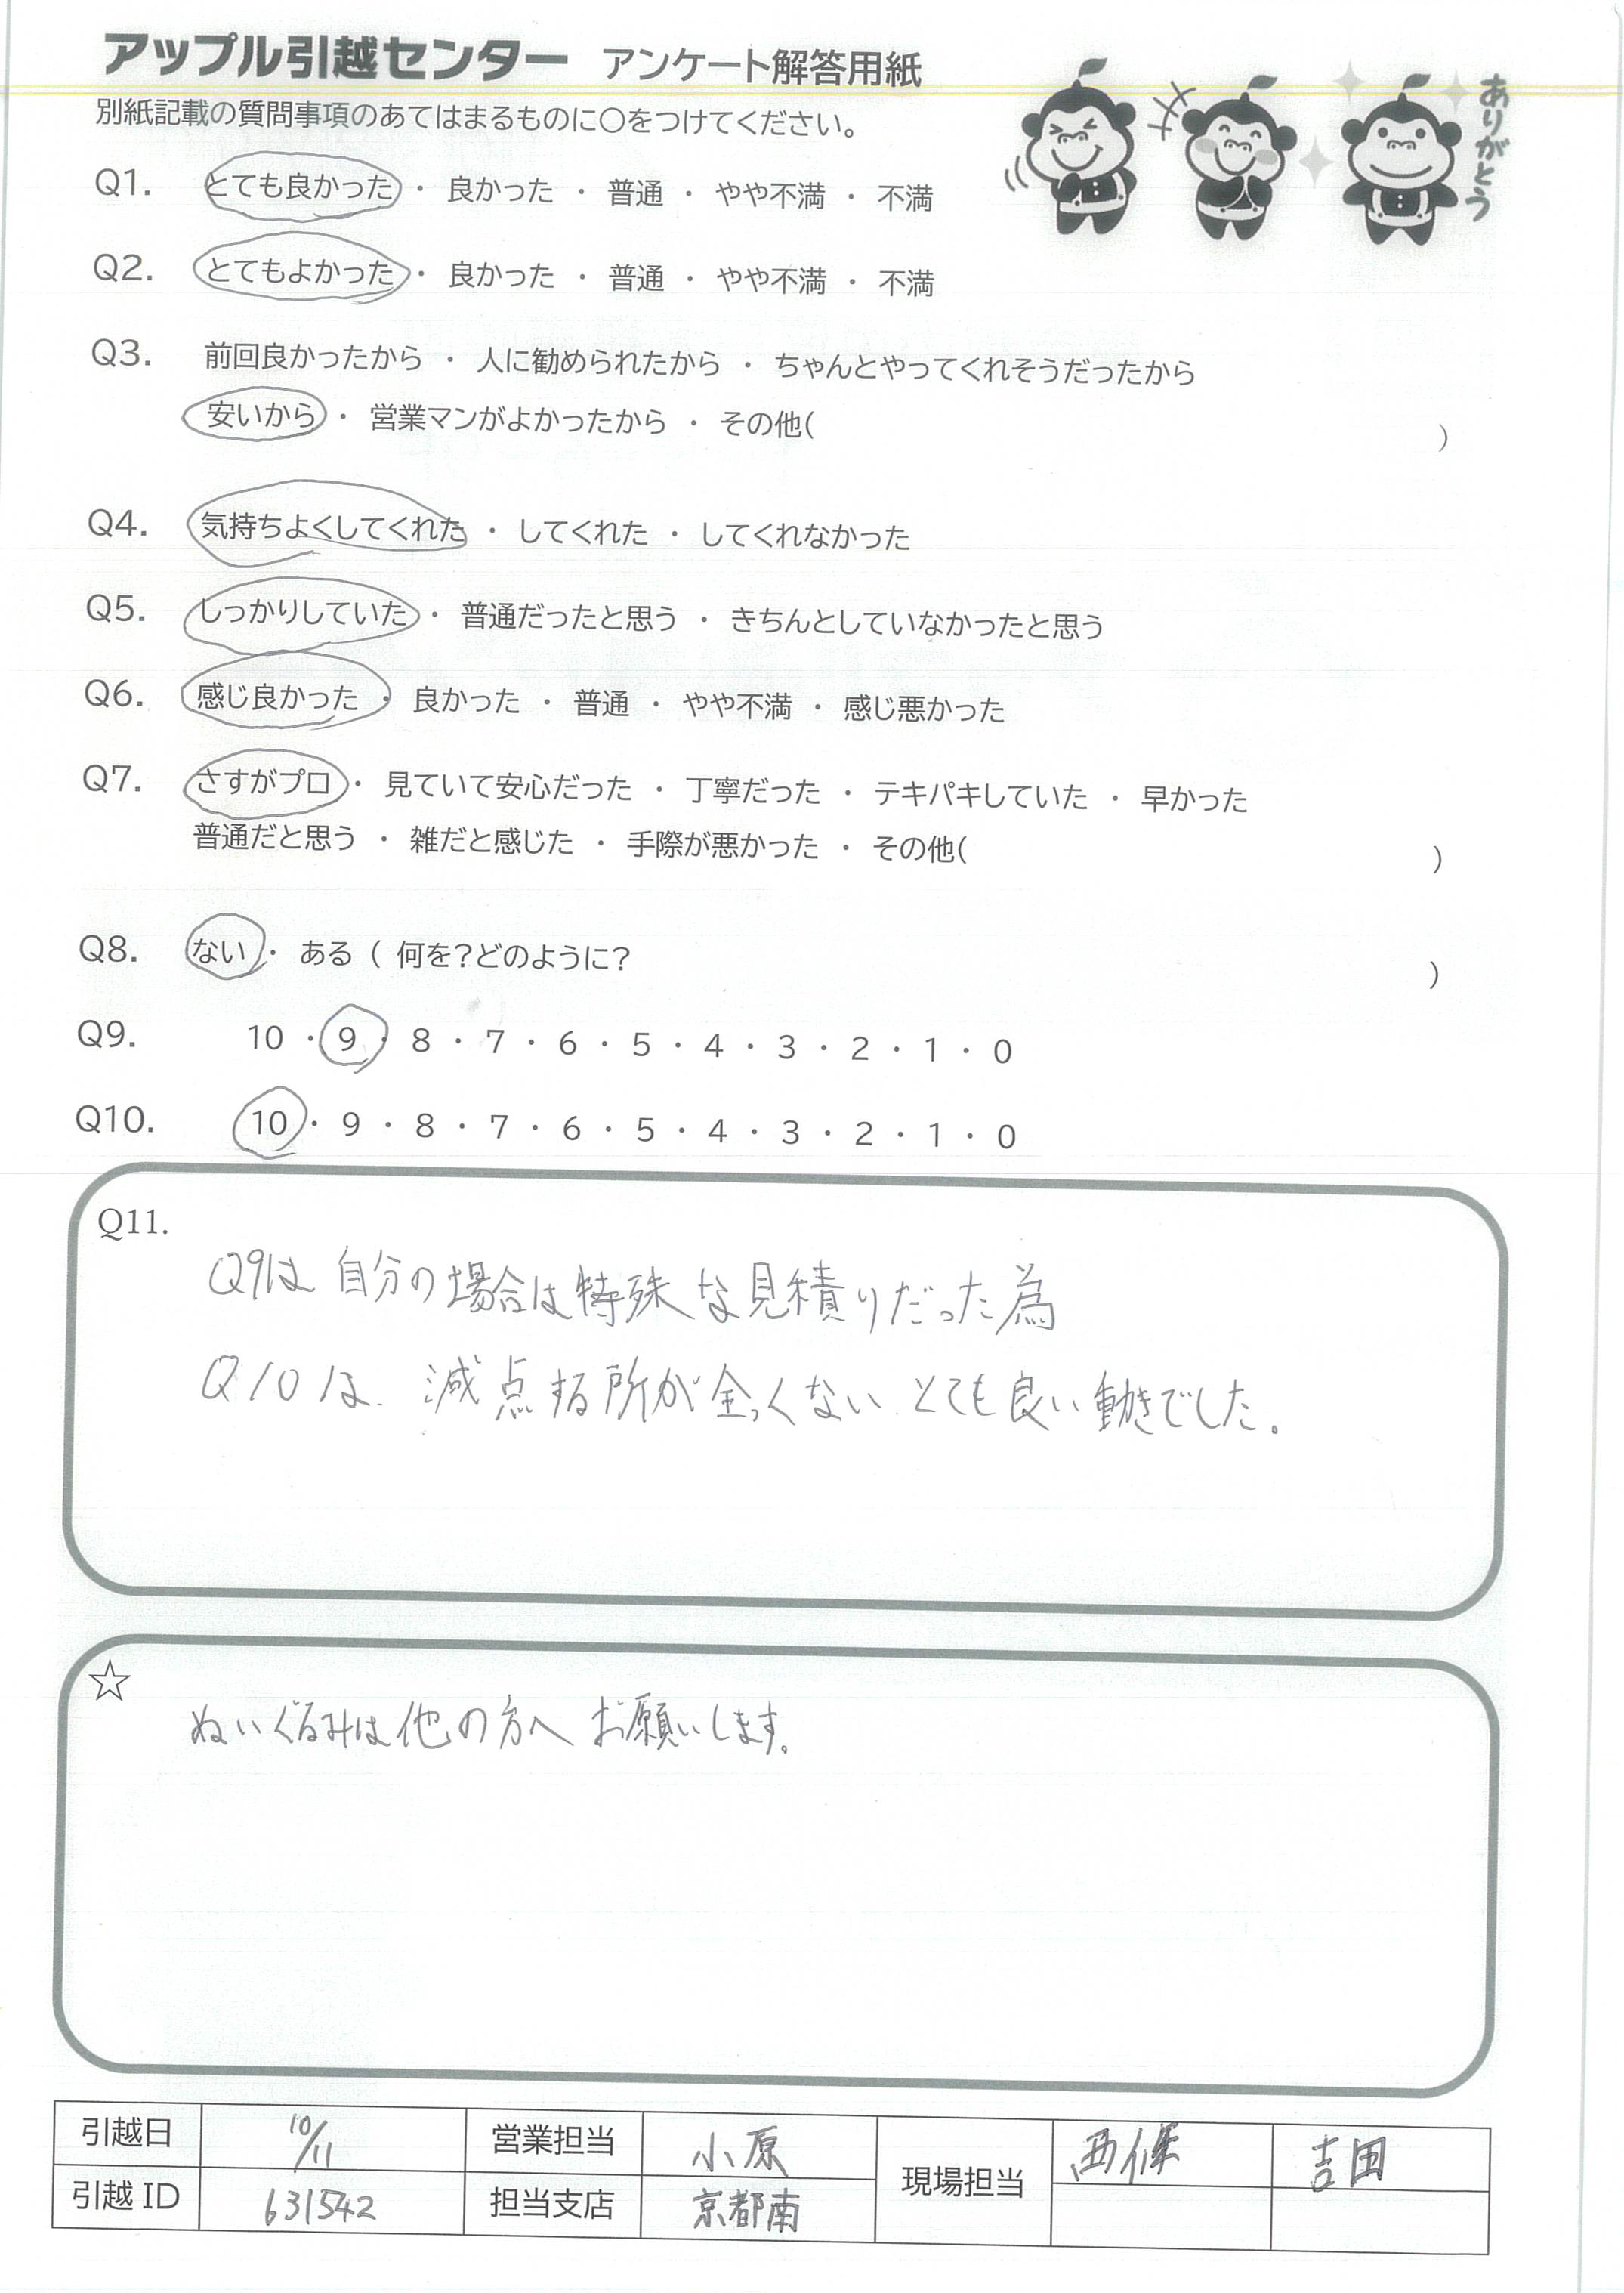 アップル引越センター アンケート解答用紙
別紙記載の質問事項のあてはまるものに〇をつけてください。
ありがとう
Q1. とても良かった ・ 良かった ・ 普通 ・ やや不満 ・ 不満
Q2. とてもよかった ・ 良かった ・ 普通 ・ やや不満 ・ 不満
Q3. 前回良かったから ・ 人に勧められたから ・ ちゃんとやってくれそうだったから
安いから ・ 営業マンがよかったから ・ その他( )
Q4. 気持ちよくしてくれた ・ してくれた ・ してくれなかった
Q5. しっかりしていた ・ 普通だったと思う ・ きちんとしていなかったと思う
Q6. 感じ良かった ・ 良かった ・ 普通 ・ やや不満 ・ 感じ悪かった
Q7. さすがプロ ・ 見ていて安心だった ・ 丁寧だった ・ テキパキしていた ・ 早かった
普通だと思う ・ 雑だと感じた ・ 手際が悪かった ・ その他( )
Q8. ない ・ ある ( 何を?どのように? )
Q9. 10 ・ 9 ・ 8 ・ 7 ・ 6 ・ 5 ・ 4 ・ 3 ・ 2 ・ 1 ・ 0
Q10. 10 ・ 9 ・ 8 ・ 7 ・ 6 ・ 5 ・ 4 ・ 3 ・ 2 ・ 1 ・ 0
Q11.
Q9は 自分の場合は特殊な見積りだった為
Q10は、減点する所が全くない、とても良い動きでした。
☆
ぬいぐるみは他の方へ お願いします。
引越日 10/11 営業担当 小原 現場担当 西條 吉田
引越ID 631542 担当支店 京都南